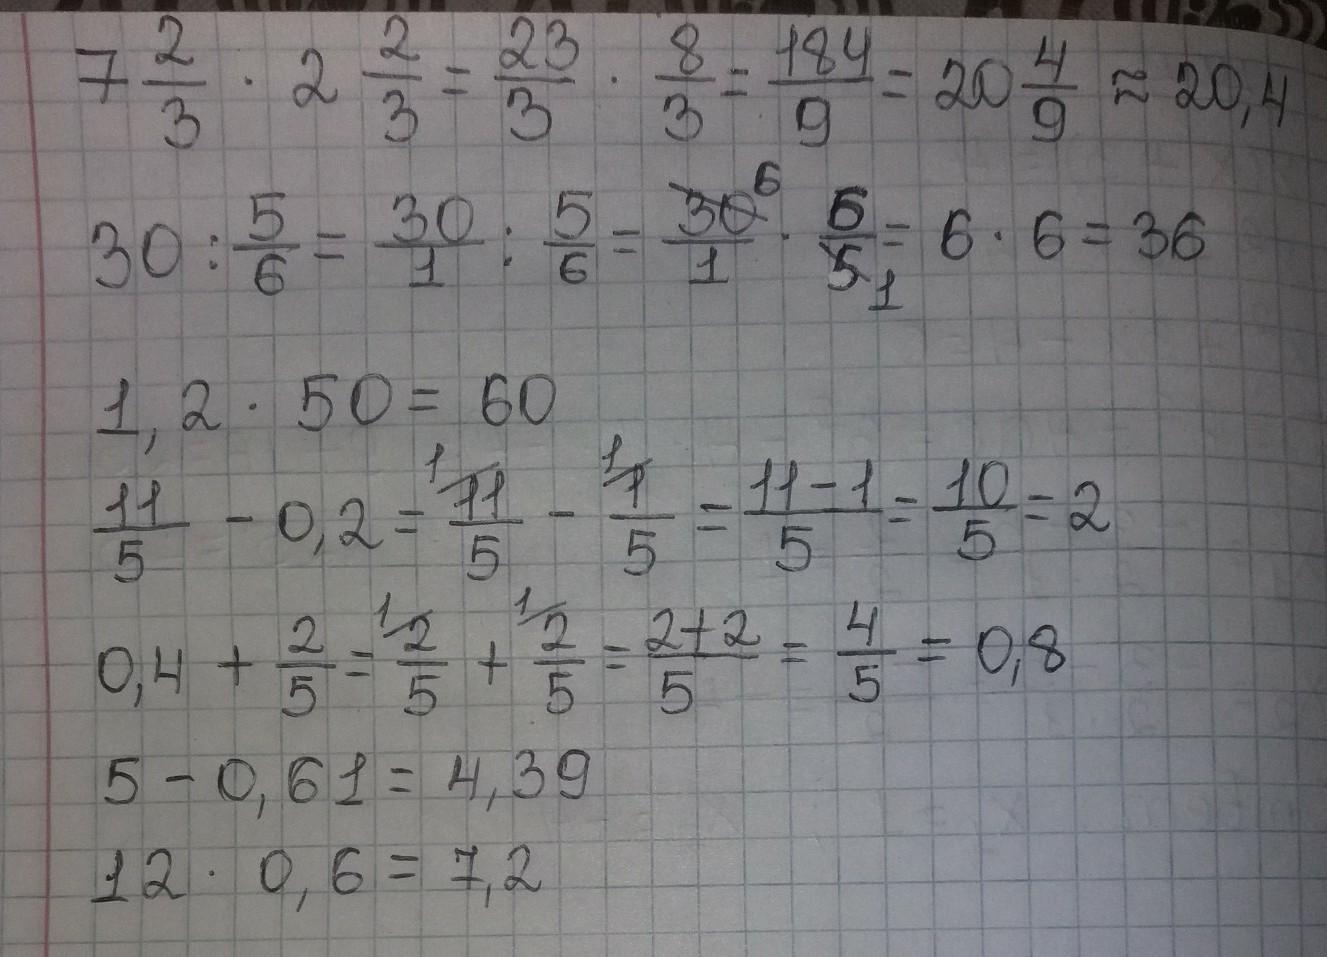 7 2/3 · 2 2/3 = 23/3 · 8/3 = 184/9 = 20 4/9 ≈ 20,4
30 : 5/6 = 30/1 : 5/6 = 30 6/1 · 6/5 1 = 6 · 6 = 36
1,2 · 50 = 60
11/5 - 0,2 = 1/ 11/5 - 1/ 1/5 = 11-1/5 = 10/5 = 2
0,4 + 2/5 = 1/ 2/5 + 1/ 2/5 = 2+2/5 = 4/5 = 0,8
5 - 0,61 = 4,39
12 · 0,6 = 7,2